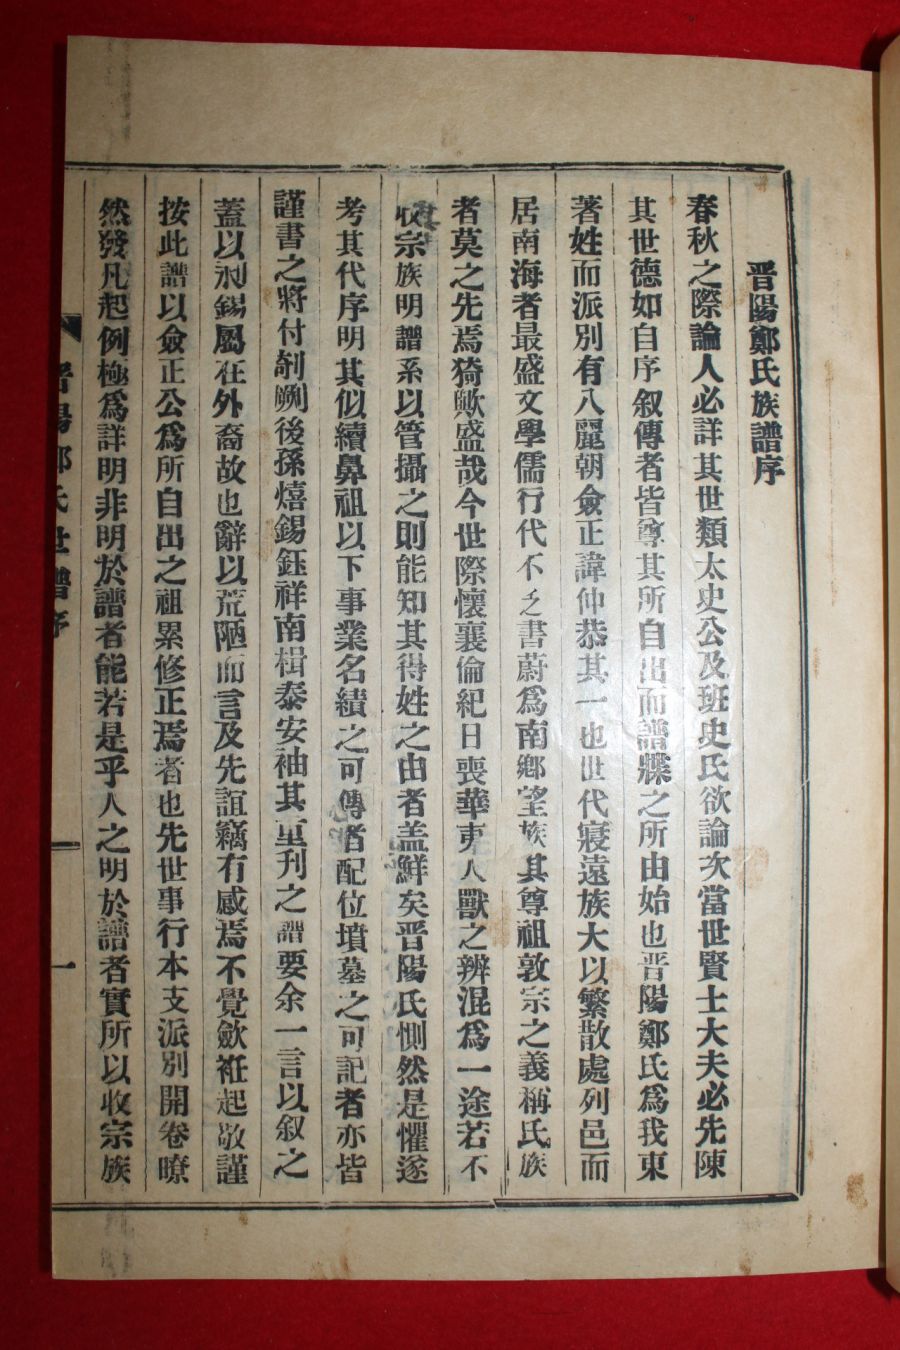 晋陽鄭氏族譜序
春秋之際論人必詳其世類太史公及班史氏欲論次當世賢士大夫必先陳
其世德如自序叙傳者皆尊其所自出而譜牒之所由始也晋陽鄭氏爲我東
著姓而派別有八麗朝僉正諱仲恭其一也世代寢遠族大以繁散處列邑而
居南海者最盛文學儒行代不乏書蔚爲南鄕望族其尊祖敦宗之義稱氏族
者莫之先焉猗歟盛哉今世際懷襄倫紀日喪華夷人獸之辨混爲一途若不
收宗族明譜系以管攝之則能知其得姓之由者盖鮮矣晋陽氏惻然是懼遂
考其代序明其似續鼻祖以下事業名績之可傳者配位墳墓之可記者亦皆
謹書之將付剞劂後孫熺錫鈺祥南楫泰安袖其重刊之譜要余一言以叙之
蓋以永錫屬在外裔故也辭以荒陋而言及先誼竊有感焉不覺斂袵起敬謹
按此譜以僉正公爲所自出之祖累修正焉者也先世事行本支派別開卷瞭
然發凡起例極爲詳明非明於譜者能若是乎人之明於譜者實所以收宗族
晋陽鄭氏世譜序
一